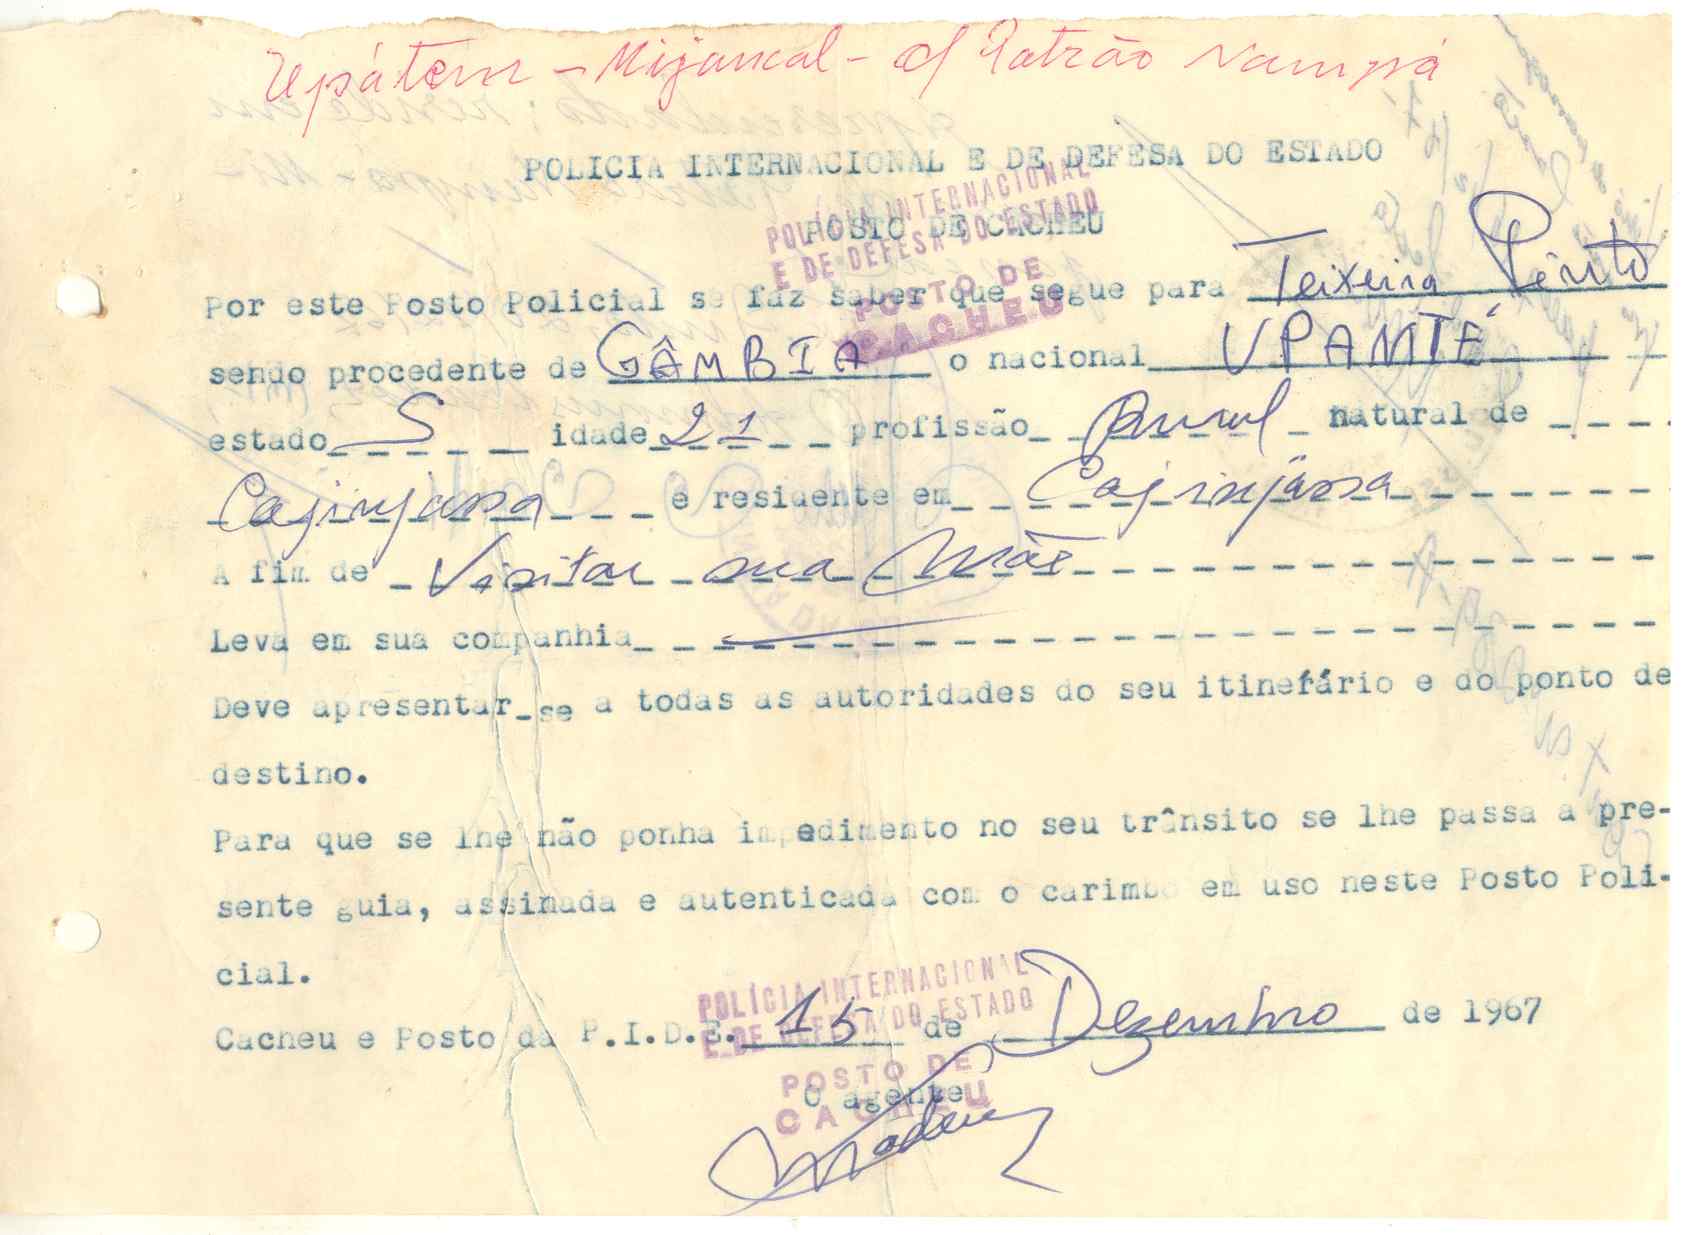 Upátem - Mijancal - Patrão Nampá
POLICIA INTERNACIONAL E DE DEFESA DO ESTADO
POSTO DE CACHEU
POLÍCIA INTERNACIONAL
E DE DEFESA DO ESTADO
POSTO DE
CACHEU
Por este Posto Policial se faz saber que segue para Teixeira Pinto
sendo procedente de GÂMBIA o nacional UPAMTÉ
estado S idade 21 profissão Rural natural de
Cajinjassa e residente em Cajinjassa
A fim de Visitar sua Mãe
Leva em sua companhia
Deve apresentar-se a todas as autoridades do seu itinerário e do ponto de
destino.
Para que se lhe não ponha impedimento no seu trânsito se lhe passa a pre-
sente guia, assinada e autenticada com o carimbo em uso neste Posto Poli-
cial.
Cacheu e Posto da P.I.D.E. 15 de Dezembro de 1967
POLÍCIA INTERNACIONAL
E DE DEFESA DO ESTADO
POSTO DE
CACHEU
O agente